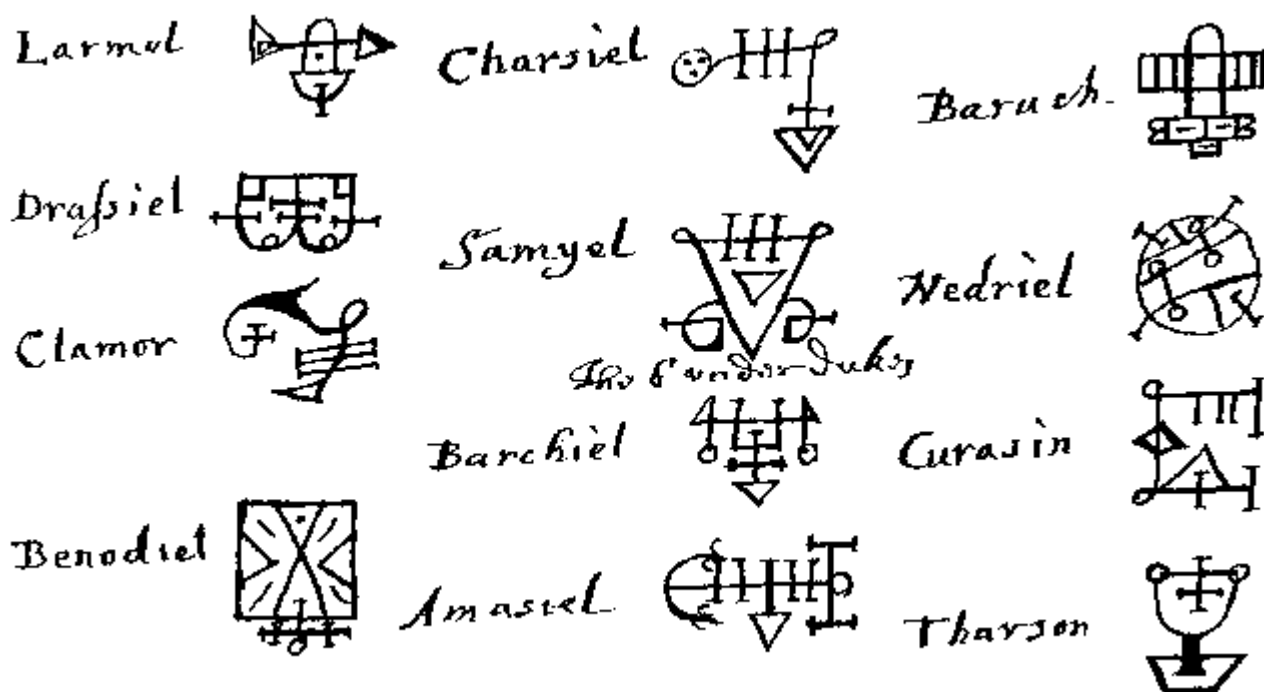 Larmol
Draſsiel
Clamor
Benodiel
Charsiel
Samyel
The 6 under Dukes
Barchiel
Amasiel
Baruch.
Nedriel
Curasin
Tharson